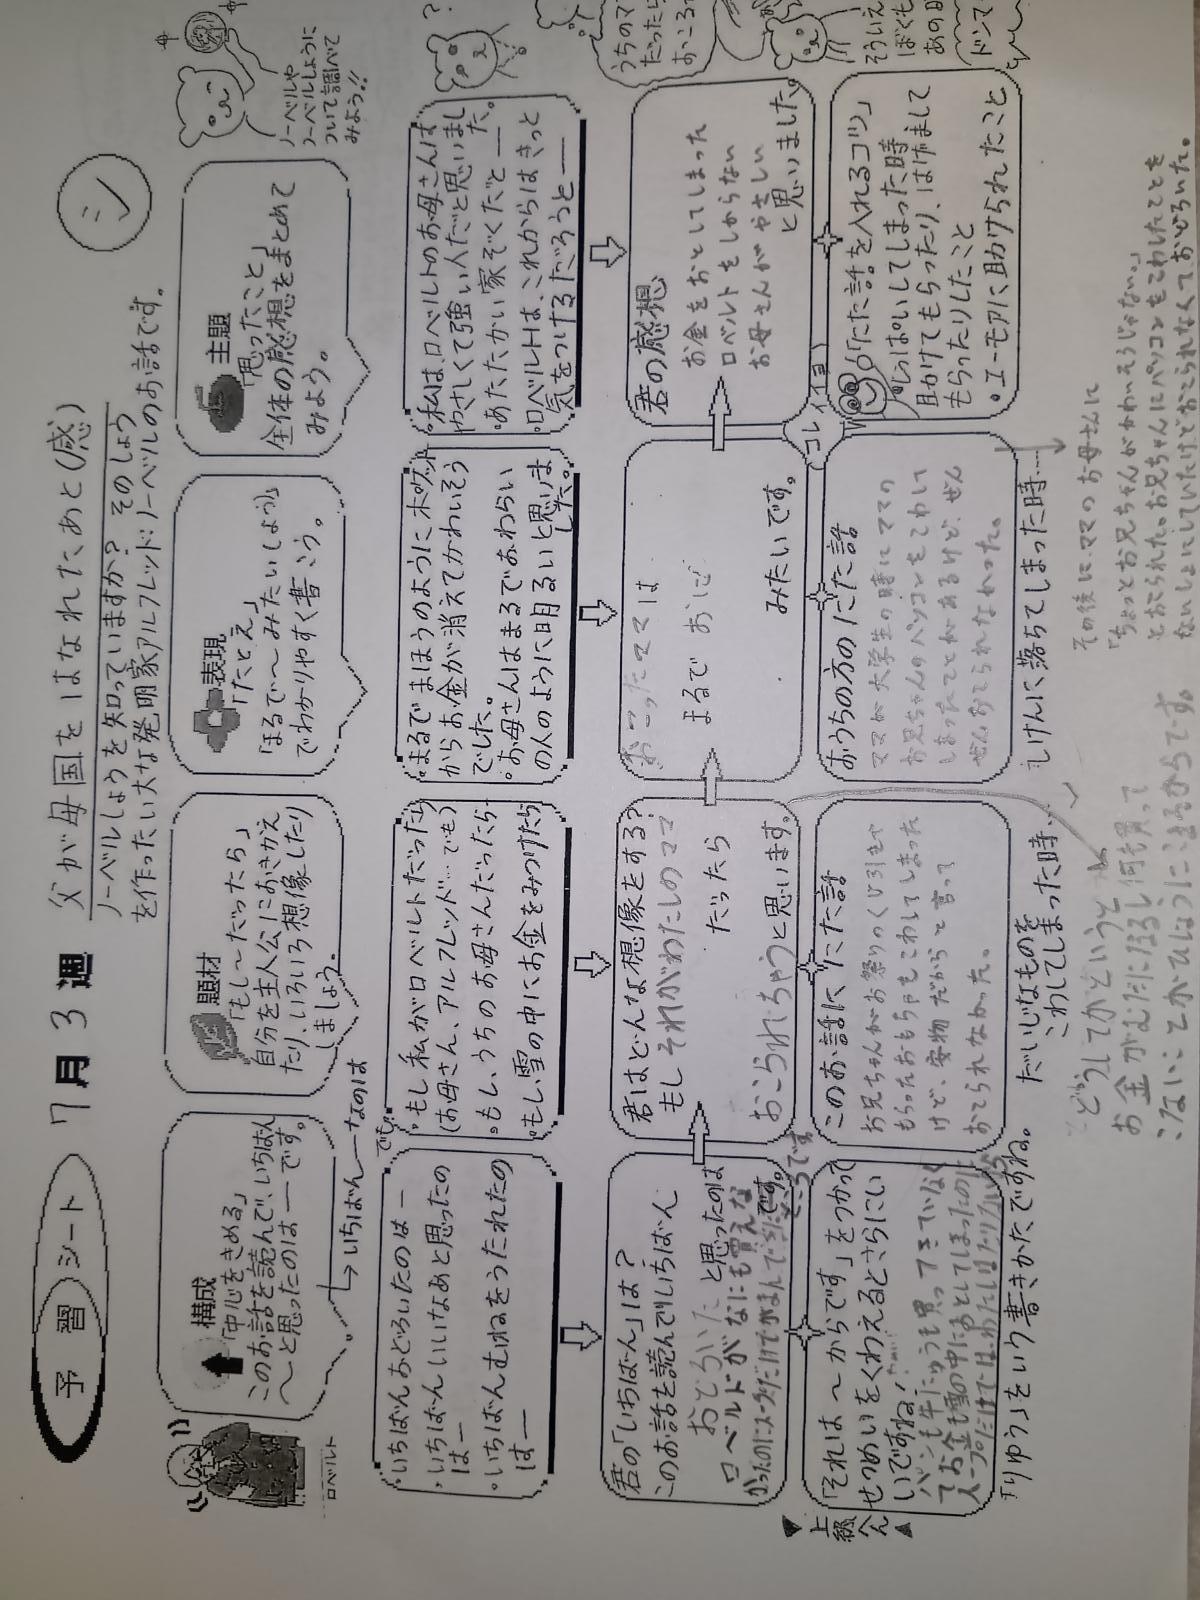 予習シート 7月3週 父が母国をはなれたあと(感) シ
ノーベルしょうを知っていますか? そのしょう
を作ったい大な発明家アルフレッド・ノーベルのお話です。
ロベルト
構成
「中心をきめる」
このお話を読んで、いちばん
〜と思ったのは―です。
→いちばん―なのは
題材
「もし〜だったら」
自分を主人公におきかえ
たり、いろいろ想像したり
しましょう。
表現
「たとえ」
「まるで〜みたいでしょう」
でわかりやすく書こう。
主題
「思ったこと」
全体の感想をまとめて
みよう。
ノーベルや
ノーベルしょうに
ついて調べて
みよう!!
・いちばんおどろいたのは―
・いちばんいいなあと思ったの
は―
・いちばんむねをうたれたの
は―
でも
・もし私がロベルトだったら
(お母さん、アルフレッド…でも)
・もし、うちのお母さんだったら
・もし、雪の中にお金をみつけたら
・まるでまほうのようにポケット
からお金が消えてかわいそう
でした。
・お母さんはまるでおわらい
の人のように明るいと思いま
した。
・私は、ロベルトのお母さんは
やさしくて強い人だと思いまし
た。
・あたたかい家ぞくだと―
・ロベルトは、これからはきっと
気をつけるだろうと―
?
君の「いちばん」は?
このお話を読んでいちばん
おどろいた と思ったのは
ロベルトがなにも買えな
かったのにスープだけでがまんできた
ところです
です。
君はどんな想像をする?
もし それがわたしのママ
だったら
おこられちゃうと思います。
おこったママは
まるで おに
みたいです。
君の感想
お金をおとしてしまった
ロベルトをしからない
お母さんがやさしい
と思いました。
うちのマ
だったら
おころ
そういえ
ぼくも
あの
ドンマ
上級へん
「それは〜からです」をつかって
せつめいをくわえるとさらにい
いですね!
パンも牛にゅうも買ってきていなく
てお金も雪の中におとしてしまったのに
スープだけではわたしはたりない
「りゆう」をいう書きかたですね。
このお話ににた話
お兄ちゃんがお祭りのくじ引きで
もらったおもちゃをこわしてしまった
けど、安物だからと言って
おこられなかった。
だいじなものを
こわしてしまった時…
おうちの方のにた話
ママが大学生の時にママの
お兄ちゃんのパソコンをこわして
しまったことがあるけど、ぜん
ぜんおこられなかった。
しけんに落ちてしまった時…
コレ
イイヨ
「にた話を入れるコツ」
しっぱいしてしまった時
助けてもらったり、はげまして
もらったりしたこと
・ユーモアに助けられたこと
どうしてかというと
お金がむだになるし何も買って
こないことがひょうにこまるからです
その後に、ママのお母さんに
「ちょっとお兄ちゃんがかわいそうじゃない。」
とおこられた。お兄ちゃんにパソコンをこわしたことを
ないしょにしていたけどおこられなくておどろいた。